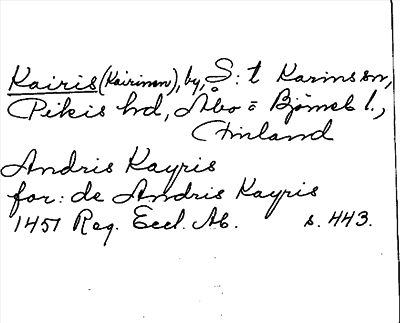 Kairis (Kairinen), by, S:t Karins sn,
Pikis hd, Åbo o Björneb l.,
Finland
Andris Kayris
for: de Andris Kayris
1451 Reg. Eccl. Ab. s. 443.